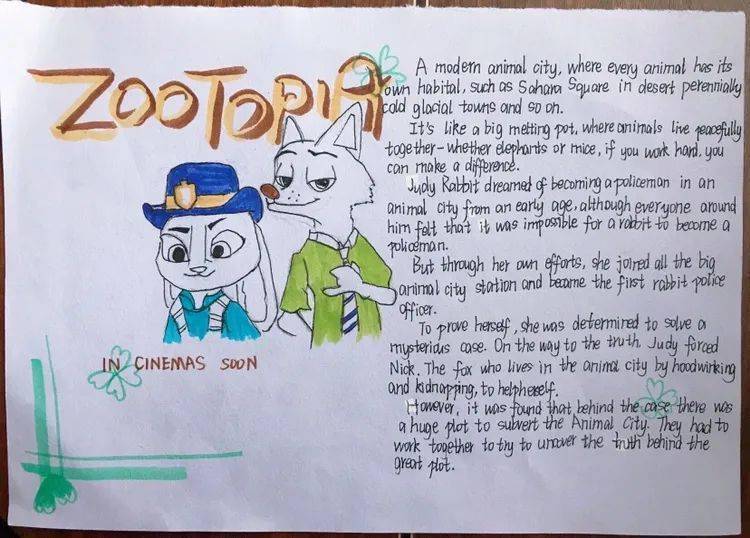 ZOOTOPIA
IN CINEMAS SOON
A modern animal city, where every animal has its
own habital, such as Sahara Square in desert perennially
cold glacial towns and so on.
It's like a big melting pot, where animals live peacefully
together-whether elephants or mice, if you work hard, you
can make a difference.
Judy Rabbit dreamed of becoming a policeman in an
animal city from an early age, although everyone around
him felt that it was impossible for a rabbit to become a
policeman.
But through her own efforts, she joined all the big
animal city station and became the first rabbit police
officer.
To prove herself, she was determined to solve a
mysterious case. On the way to the truth, Judy forced
Nick. The fox who lives in the animal city by hoodwinking
and kidnapping, to helpherself.
However, it was found that behind the case there was
a huge plot to subvert the Animal City. They had to
work together to try to uncover the truth behind the
great plot.